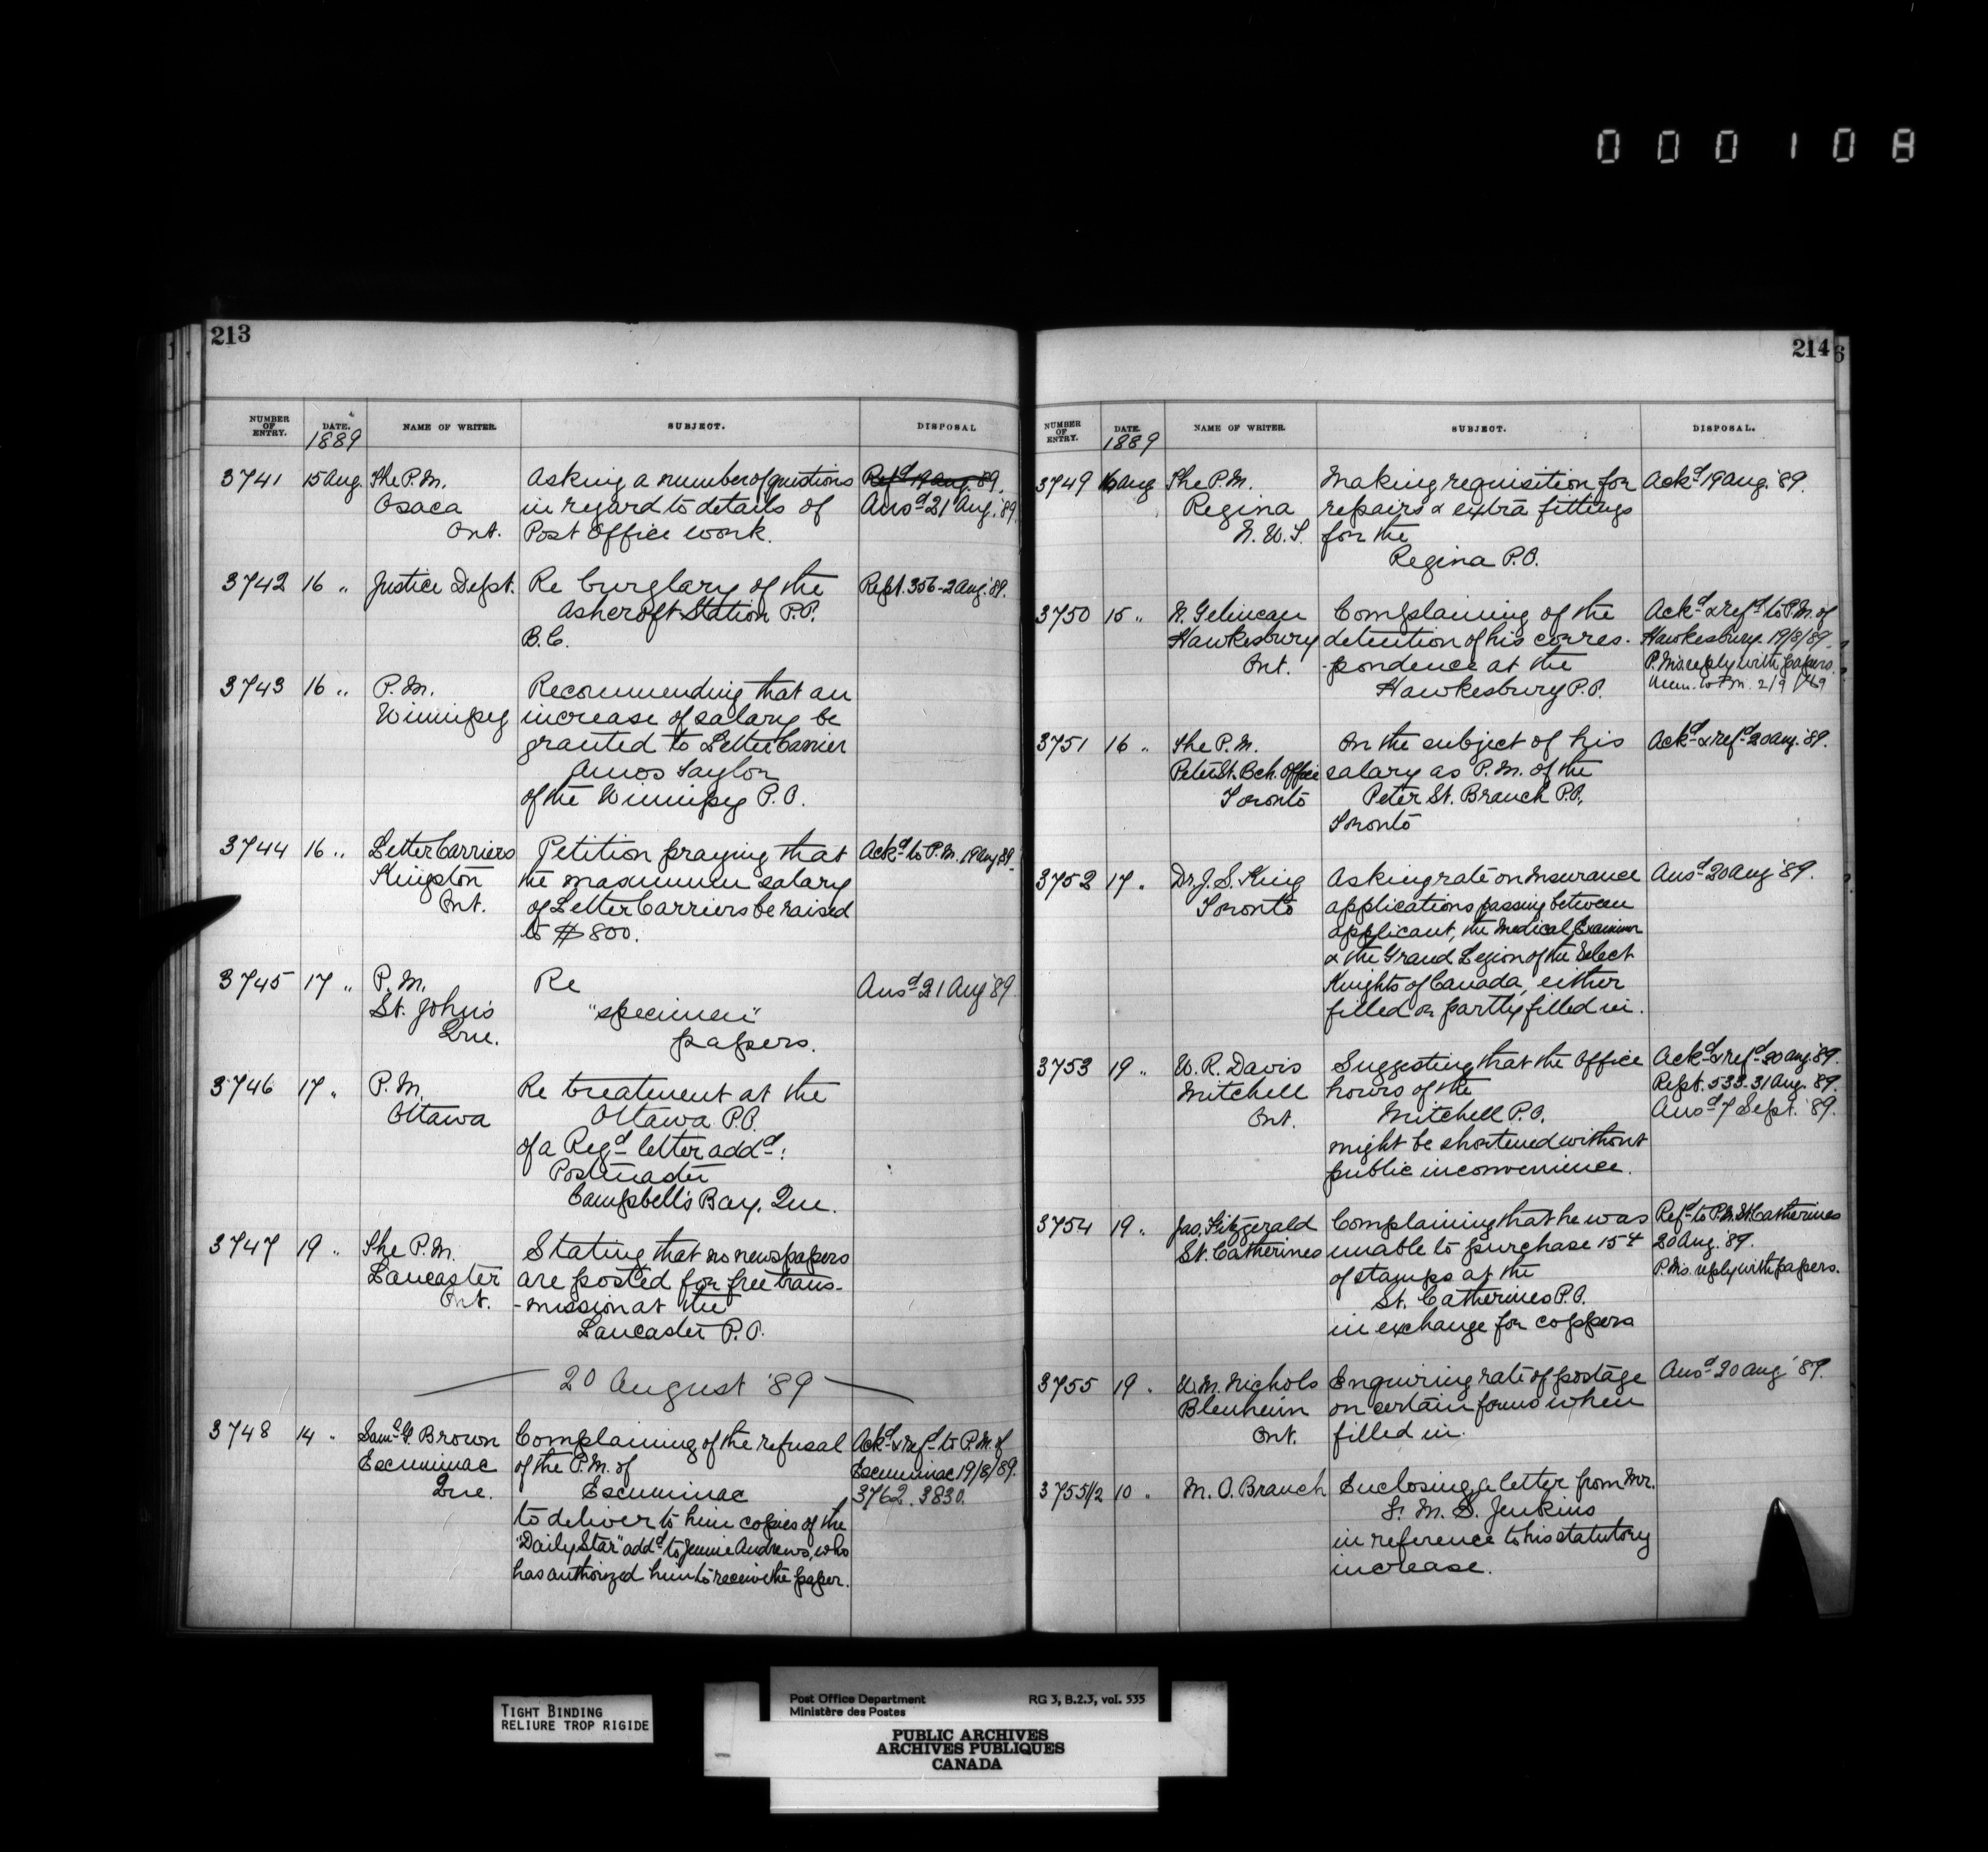 000108
213
NUMBER OF ENTRY. DATE. 1889 NAME OF WRITER. SUBJECT. DISPOSAL
3741 15 Aug. The P.M. Asking a number of questions Refd 19 Aug. 89.
Osaca in regard to details of Ansd 21 Aug. '89.
Ont. Post Office work.
3742 16 " Justice Dept. Re burglary of the Rept. 356-2 Aug. '89.
Ashcroft Station P.O.
B.C.
3743 16 " P.M. Recommending that an
Winnipeg increase of salary be
granted to Letter Carrier
Amos Taylor
of the Winnipeg P.O.
3744 16 " Letter Carriers Petition praying that Ackd to P.M. 19 Aug 89.
Kingston the maximum salary
Ont. of Letter Carriers be raised
to $800.
3745 17 " P.M. Re Ansd 21 Aug '89.
St. John's "specimen"
Que. papers.
3746 17 " P.M. Re treatment at the
Ottawa Ottawa P.O.
of a Regd letter addd:
Postmaster
Campbell's Bay, Que.
3747 19 " The P.M. Stating that no newspapers
Lancaster are posted for free trans-
Ont. -mission at the
Lancaster P.O.
20 August '89
3748 14 " Saml G. Brown Complaining of the refusal Ackd & refd to P.M. of
Escuminac of the P.M. of Escuminac 19/8/89.
Que. Escuminac 3762. 3830.
to deliver to him copies of the
"Daily Star" addd to Jennie Andrews, who
has authorized him to receive the paper.
214
6
NUMBER OF ENTRY. DATE. 1889 NAME OF WRITER. SUBJECT. DISPOSAL.
3749 16 Aug The P.M. Making requisition for Ackd 19 Aug. '89.
Regina repairs & extra fittings
N.W.T. for the
Regina P.O.
3750 15 " N. Gelineau Complaining of the Ackd & refd to P.M. of
Hawkesbury detention of his corres- Hawkesbury. 19/8/89.
Ont. -pondence at the P.M's reply with papers.
Hawkesbury P.O. Mem. to P.M. 2/9/89
3751 16 " The P.M. On the subject of his Ackd & refd 20 Aug. '89.
Peter St. Bch. Office salary as P.M. of the
Toronto Peter St. Branch P.O.,
Toronto
3752 17 " Dr. J. S. King Asking rate on Insurance Ansd 20 Aug '89.
Toronto applications passing between
applicant, the Medical Examiner
& the Grand Legion of the Select
Knights of Canada, either
filled or partly filled in.
3753 19 " W. R. Davis Suggesting that the Office Ackd & refd 20 Aug. '89.
Mitchell hours of the Rept. 533. 31 Aug. 89.
Ont. Mitchell P.O. Ansd 7 Sept. '89.
might be shortened without
public inconvenience.
3754 19 " Jas. Fitzgerald Complaining that he was Refd to P.M. St. Catherines
St. Catherines unable to purchase 15¢ 20 Aug. '89.
of stamps at the P.M's. reply with papers.
St. Catherines P.O.
in exchange for coppers
3755 19 " W. M. Nichols Enquiring rate of postage Ansd 20 Aug '89.
Blenheim on certain forms when
Ont. filled in.
3755 1/2 10 " M. O. Branch Enclosing a letter from Mr.
F. M. S. Jenkins
in reference to his statutory
increase.
TIGHT BINDING
RELIURE TROP RIGIDE
Post Office Department RG 3, B.2.3, vol. 535
Ministère des Postes
PUBLIC ARCHIVES
ARCHIVES PUBLIQUES
CANADA